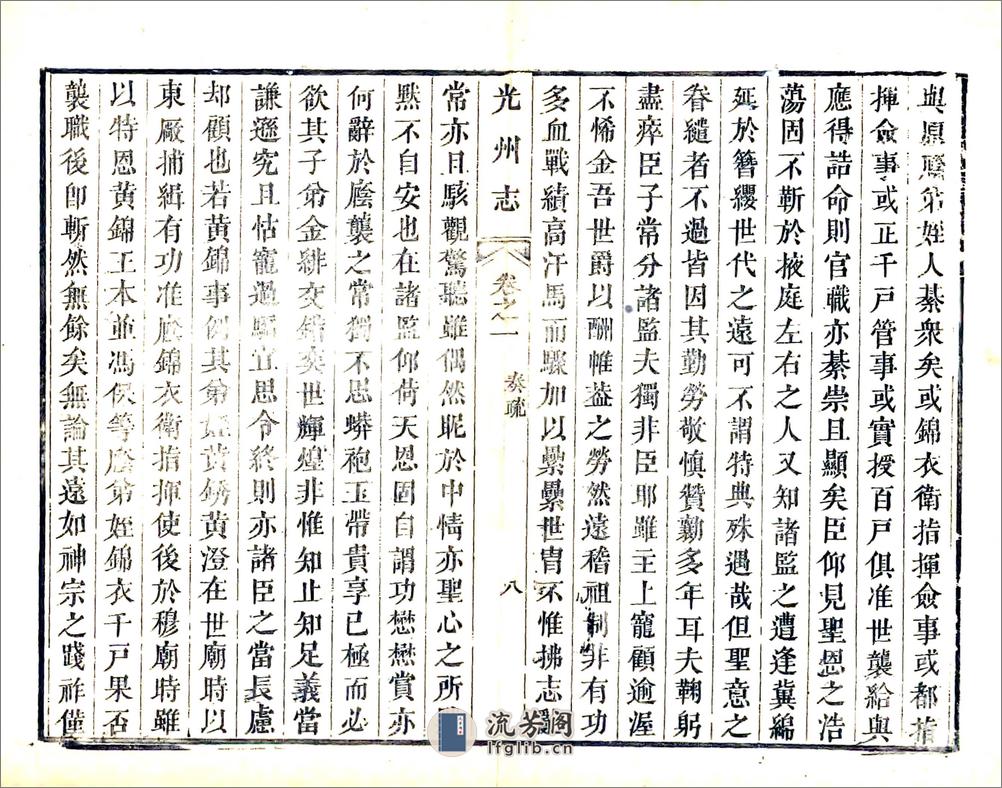 與原廕弟姪人綦衆矣或錦衣衛指揮僉事或都指
揮僉事或正千戸管事或實授百戸俱准世襲給與
應得誥命則官職亦綦崇且顯矣臣仰見聖恩之浩
蕩固不靳於掖庭左右之人又知諸監之遭逢冀綿
延於簪纓世代之遠可不謂特典殊遇哉但聖意之
眷繾者不過皆因其勤勞敬慎贊勷多年耳夫鞠躬
盡瘁臣子常分諸監夫獨非臣耶雖王上寵顧逾渥
不悕金吾世爵以酬帷葢之勞然遠稽祖制非有功
多血戰績高汗馬而驟加以纍纍世冑不惟拂志
光州志
卷之一
奏疏
八
常亦且駭觀驚聽雖偶然昵於中情亦聖心之所
黙不自安也在諸監仰荷天恩固自謂功懋懋賞亦
何辭於廕襲之常獨不思蟒袍玉帶貴享已極而必
欲其子弟金緋交錯奕世輝煌非惟知止知足義當
謙遜究且怙寵過驕宜思令終則亦諸臣之當長慮
却顧也若黄錦事例其弟姪黄銹黄澄在世廟時以
東厰捕緝有功准廕錦衣衛指揮使後於穆廟時雖
以特恩黄錦王本並馮保等廕弟姪錦衣千戸果否
襲職後卽斬然無餘矣無論其遠如神宗之踐祚僅
流芳阁
lfglib.cn